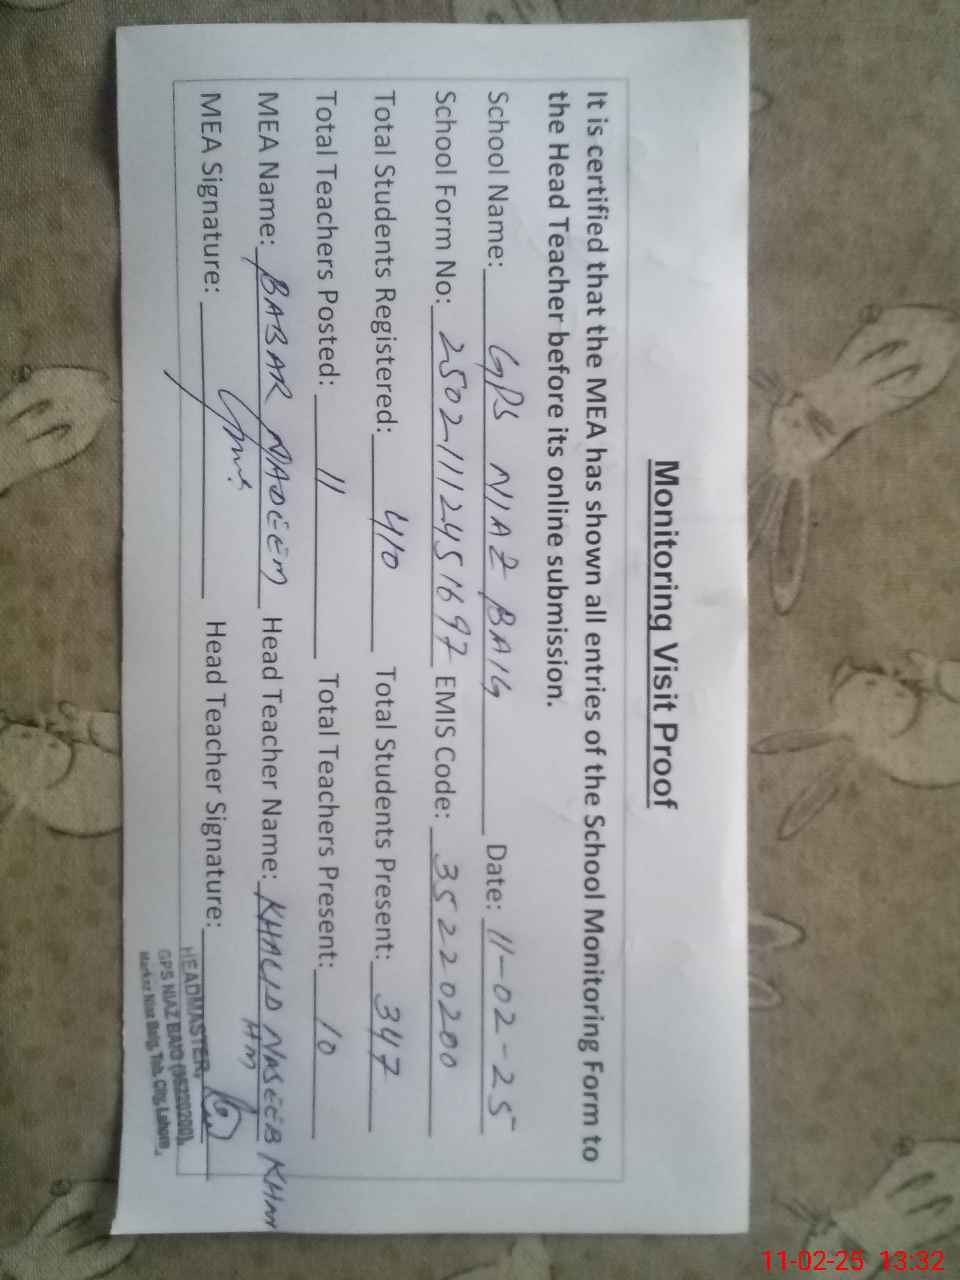 Monitoring Visit Proof
It is certified that the MEA has shown all entries of the School Monitoring Form to
the Head Teacher before its online submission.
School Name: GPS NIAZ BAIG Date: 11-02-25
School Form No: 25021112451697 EMIS Code: 35220200
Total Students Registered: 410 Total Students Present: 347
Total Teachers Posted: 11 Total Teachers Present: 10
MEA Name: BABAR NADEEM Head Teacher Name: KHALID NASEEB KHAN
HM
MEA Signature: Head Teacher Signature:
HEADMASTER,
GPS NIAZ BAIG (35220200),
Markaz Niaz Baig, Teh. City, Lahore.
11-02-25 13:32